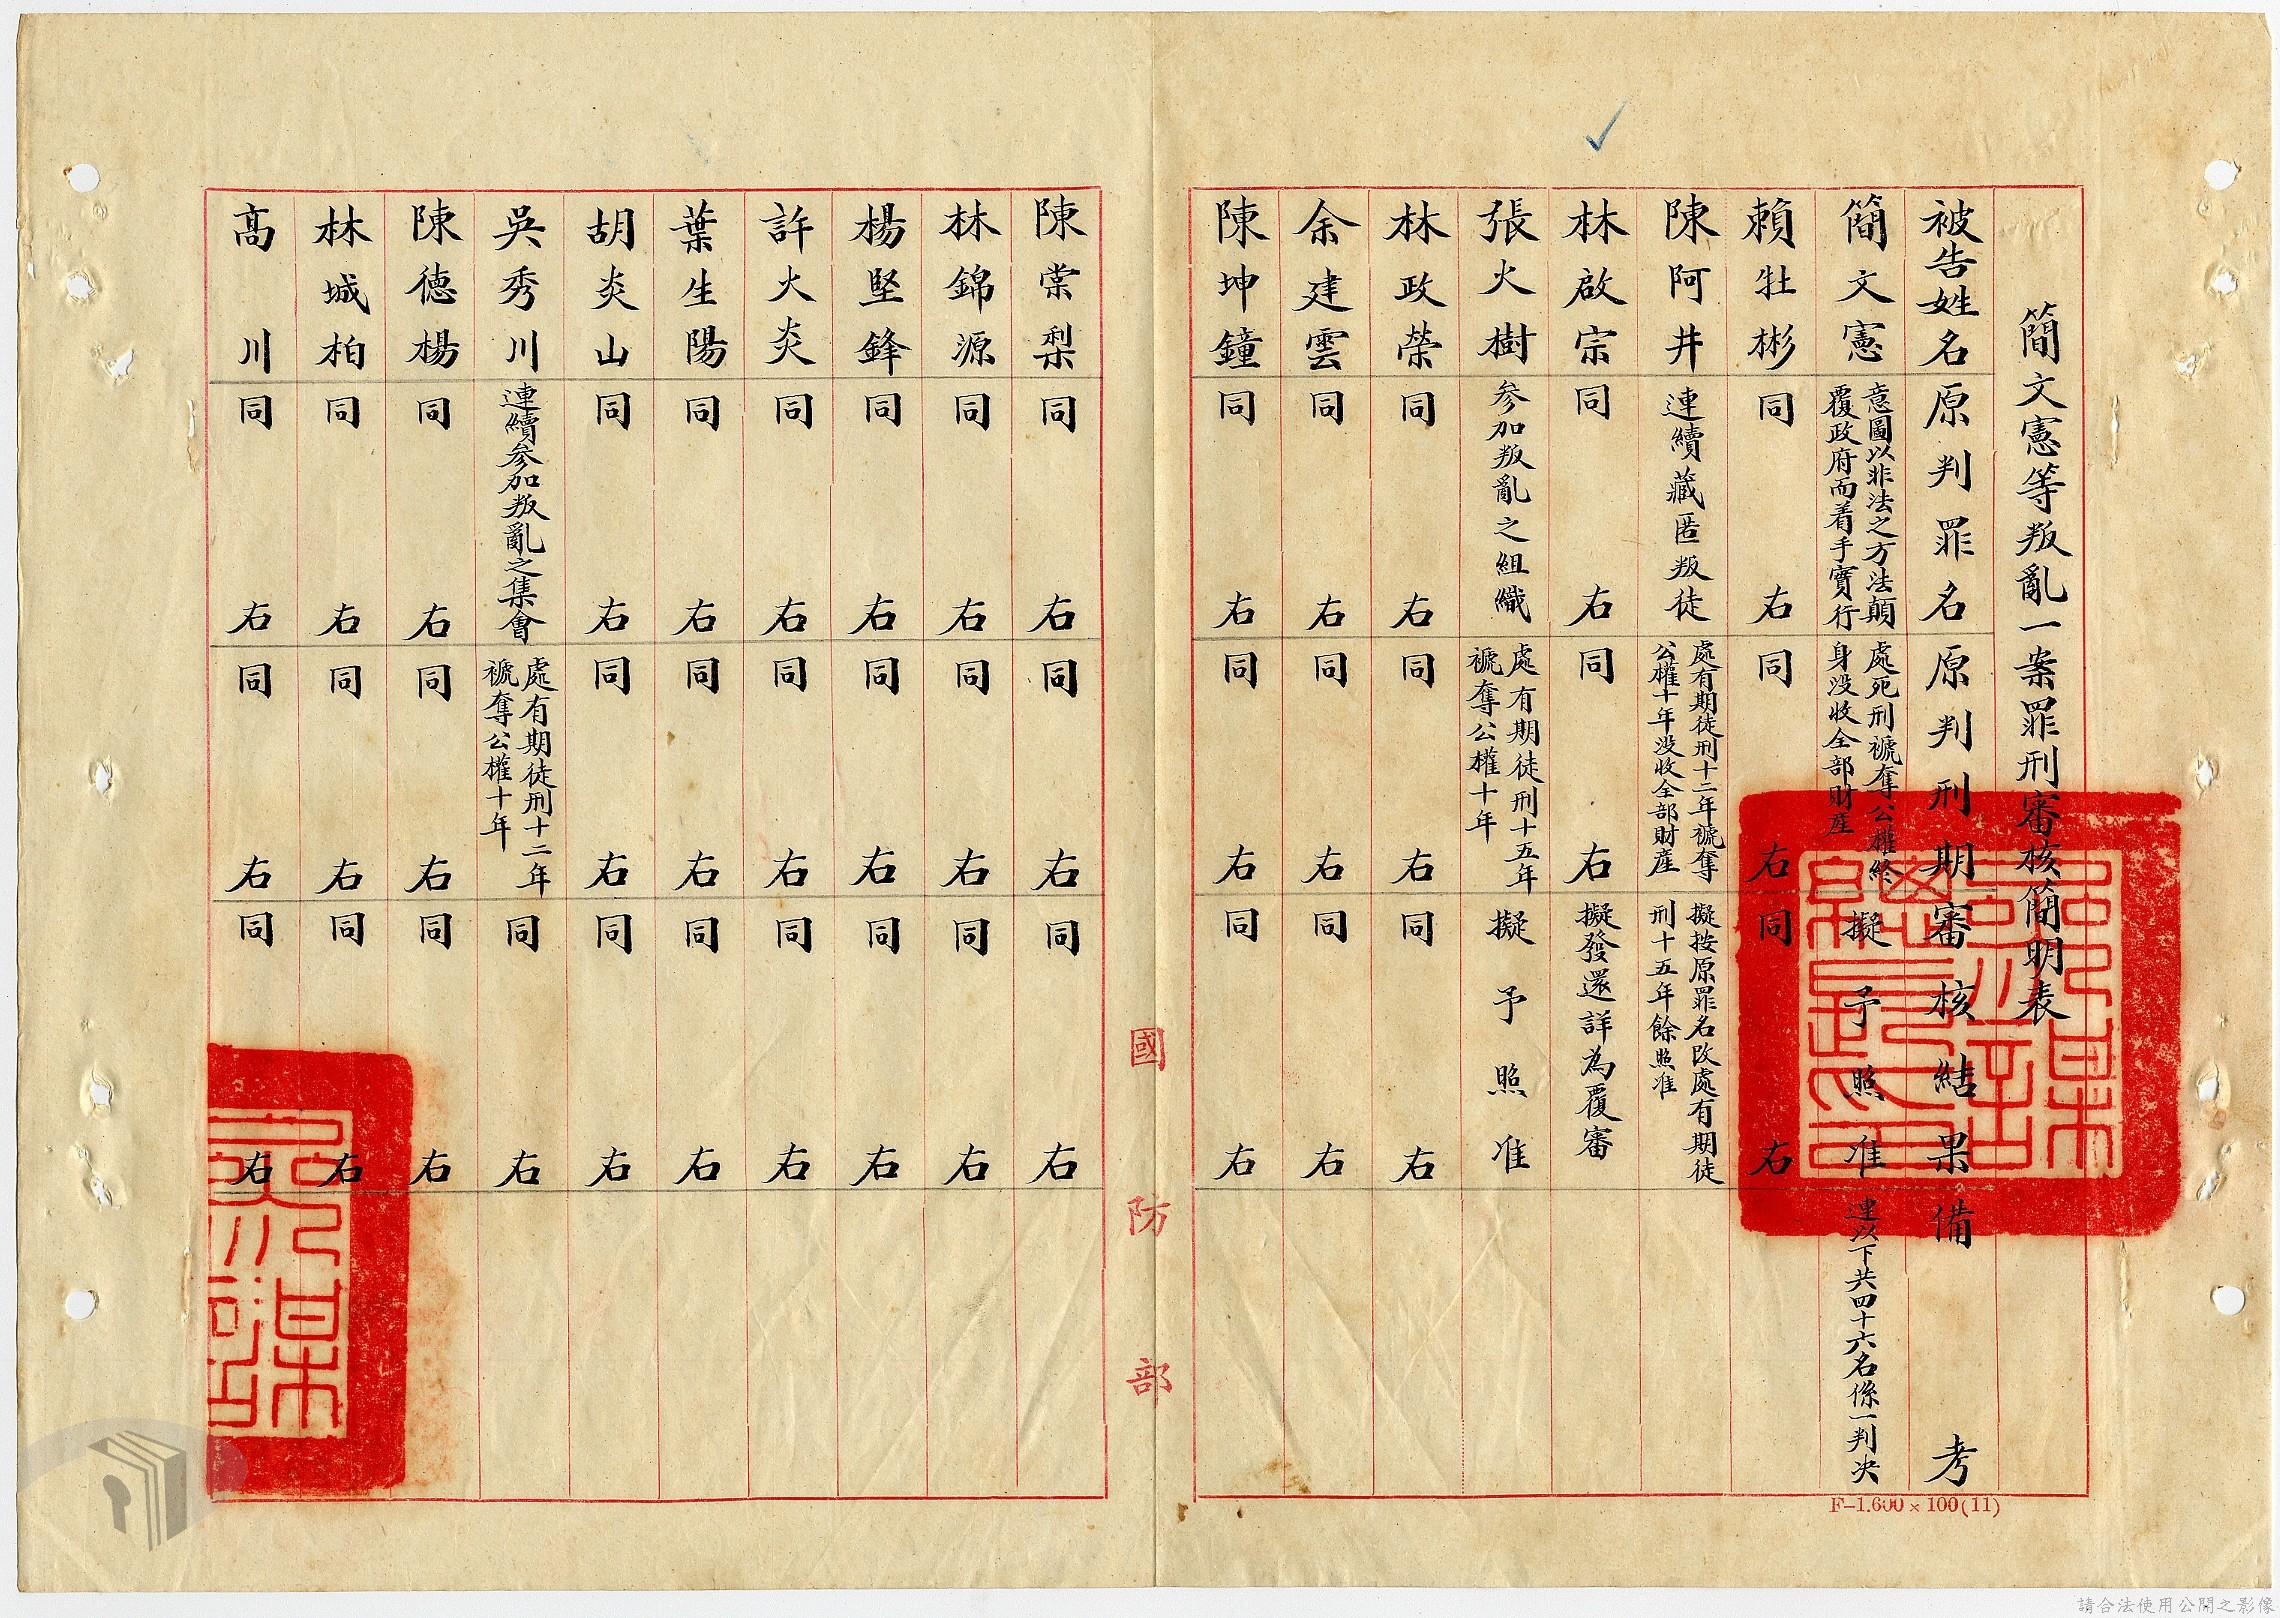 簡文憲等叛亂一案罪刑審核簡明表
被告姓名 原判罪名 原判刑期 審核結果 備考
簡文憲 意圖以非法之方法顛覆政府而着手實行 處死刑褫奪公權終身没收全部財產 擬予照准 連以下共四十六名係一判决
賴牡彬 同右 同右 同右
陳阿井 連續藏匿叛徒 處有期徒刑十二年褫奪公權十年没收全部財產 擬按原罪名改處有期徒刑十五年餘照准
林啟宗 同右 同右 擬發還詳為覆審
張火樹 參加叛亂之組織 處有期徒刑十五年褫奪公權十年 擬予照准
林政榮 同右 同右 同右
余建雲 同右 同右 同右
陳坤鐘 同右 同右 同右
F-1.600×100(11)
國防部
陳棠梨 同右 同右 同右
林錦源 同右 同右 同右
楊堅鋒 同右 同右 同右
許火炎 同右 同右 同右
葉生陽 同右 同右 同右
胡炎山 同右 同右 同右
吳秀川 連續參加叛亂之集會 處有期徒刑十二年褫奪公權十年 同右
陳德楊 同右 同右 同右
林城柏 同右 同右 同右
高川 同右 同右 同右
請合法使用公開之影像